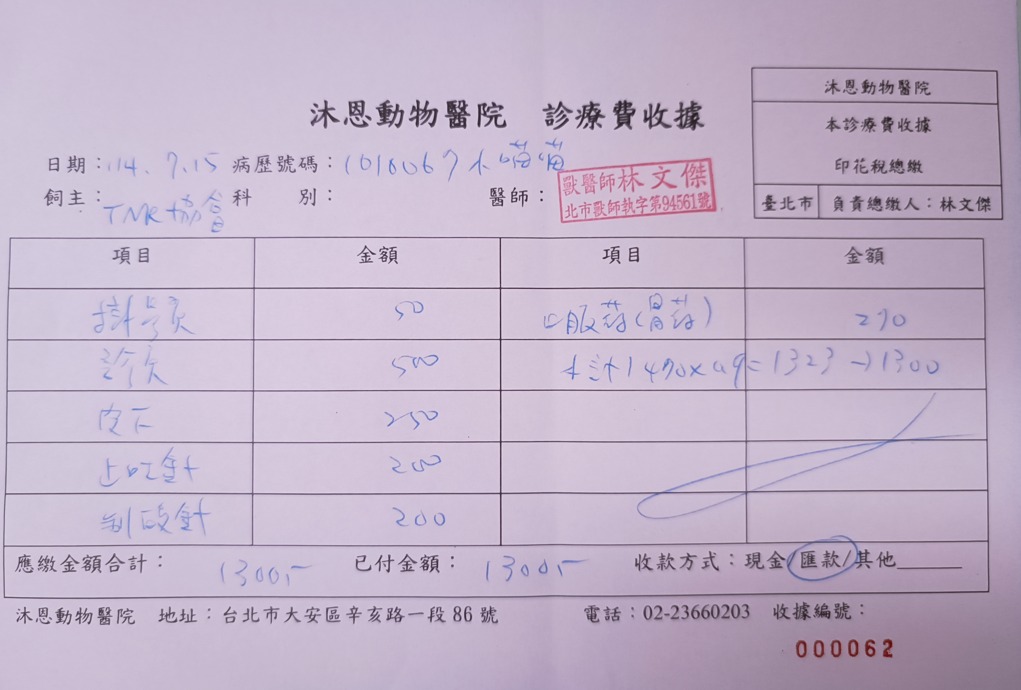 沐恩動物醫院 診療費收據
沐恩動物醫院
本診療費收據
印花稅總繳
臺北市 負責總繳人：林文傑
日期：114.7.15 病歷號碼：1010067 小喵喵
飼主：TNR協會 科 別： 醫師：
獸醫師林文傑
北市獸師執字第94561號
項目 金額 項目 金額
掛号費 50 口服药(胃药) 270
診費 500 共計1470x0.9=1323→1300
皮下 250
止吐針 200
制酸針 200
應繳金額合計：1300,- 已付金額：1300,- 收款方式：現金/匯款/其他______
沐恩動物醫院 地址：台北市大安區辛亥路一段86號 電話：02-23660203 收據編號：
000062